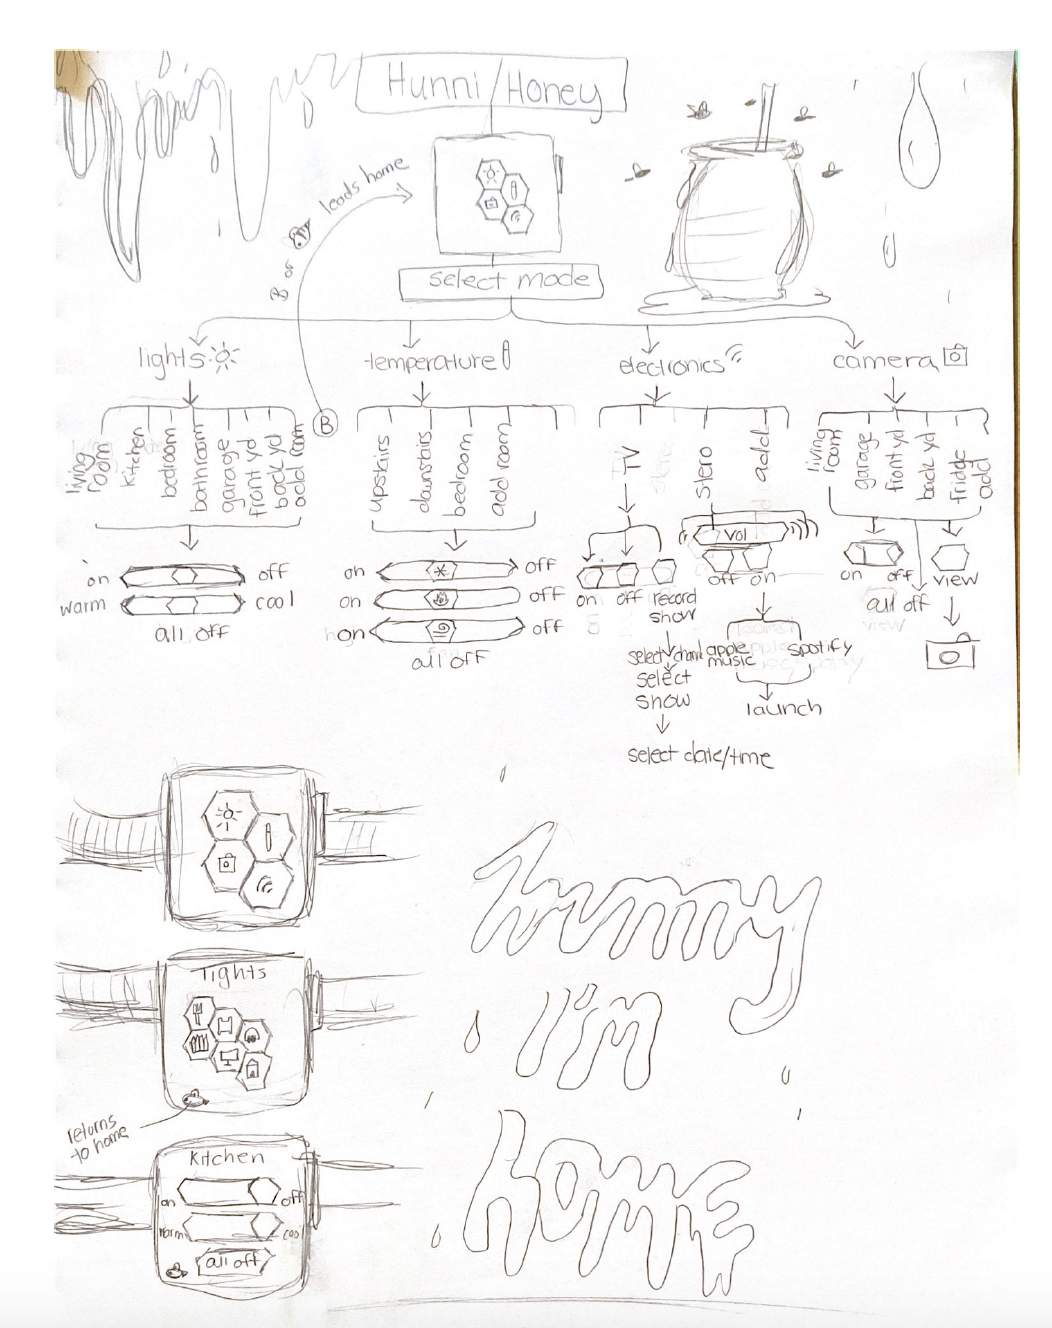 Hunni/Honey
B or
leads home
select mode
lights
temperature
electronics
camera
B
living
room
kitchen
bedroom
bathroom
garage
front yd
back yd
add room
upstairs
downstairs
bedroom
add room
TV
stero
add
living
room
garage
front yd
back yd
fridge
add
on
off
warm
cool
all off
on
off
on
off
on
off
all off
on
off
record
show
select chanl
select
show
select date/time
vol
off
on
apple
music
spotify
launch
on
off
all off
view
lights
returns
to home
Kitchen
on
off
warm
cool
all off
hunny
I'm
home